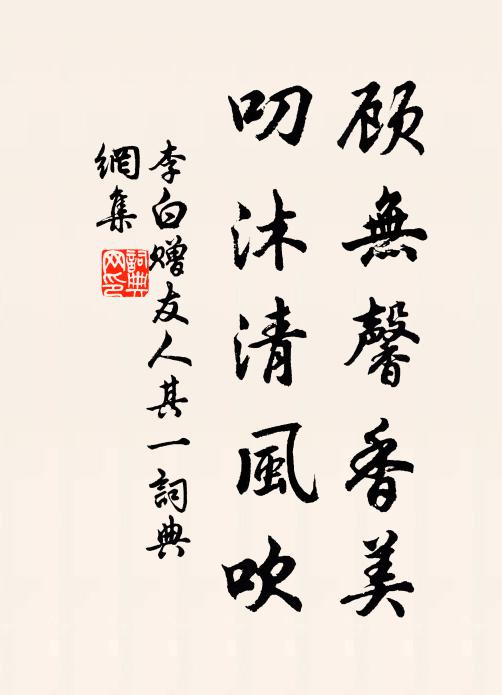 顾無馨香美
叨沐清風吹
李白赠友人其一詞典
網集
詞典
网印